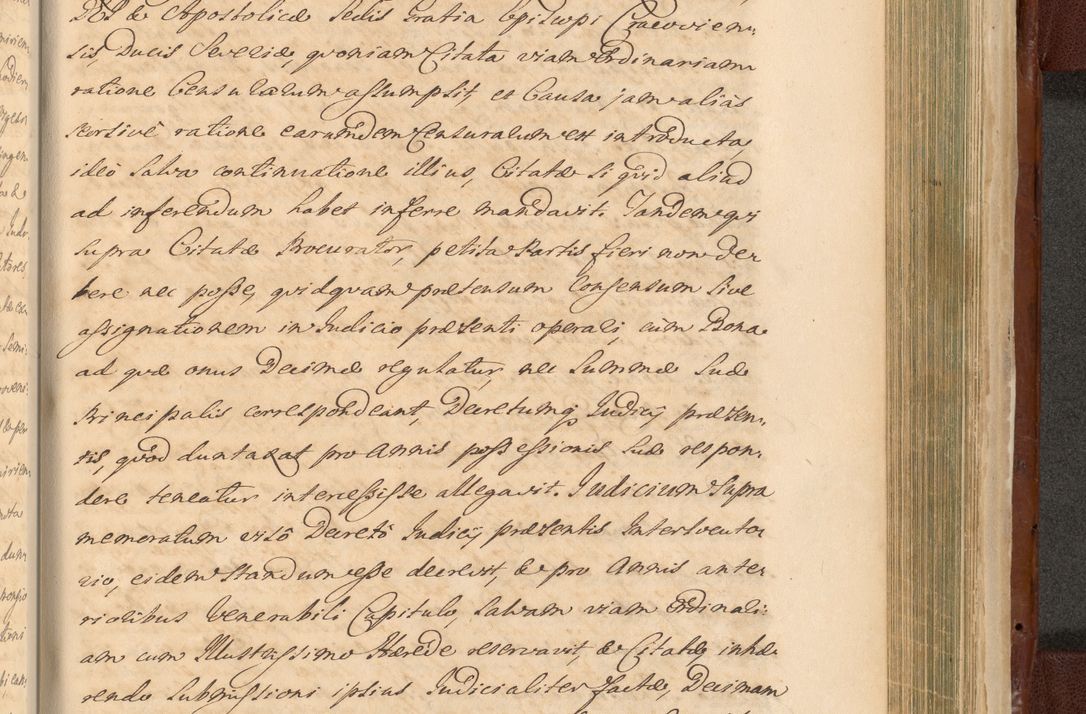 DEI & Apostolicæ Sedis Gratia Episcopi Cracovien:
sis, Ducis Severiæ, quoniam Citata viam Ordinariam
ratione Censurarum assumpsit, et Causa jam alias
cursivè ratione earumdem Censurarum est introducta,
ideò Salva continuatione illius, Citatæ Si quid aliud
ad inferendum habet inferre mandavit. Tandem qui
supra Citatæ Procurator, petita Partis fieri non de:
bere nec posse, quidquam prætensum Consensum Sive
assignationem in Judicio præsenti operari, cùm Bona
ad quæ onus Decimæ regulatur, nec Summæ Suæ
Principalis correspondeant, Decretumq Judicij præsen:
tis, quòd duntaxat pro Annis possessionis Suæ respon:
dere teneatur intercessisse allegavit. Judicium Supra
memoratum visô Decretô Judicij præsentis Interlocuto
rio, eidem Standum esse decrevit, & pro Annis ante:
rioribus Venerabili Capitulo, Salvam viam Ordinari:
am cum Illustrissimo Hærede reservavit, & Citatæ inhæ:
rendo Submissioni ipsius Judicialiter factæ, Decimam